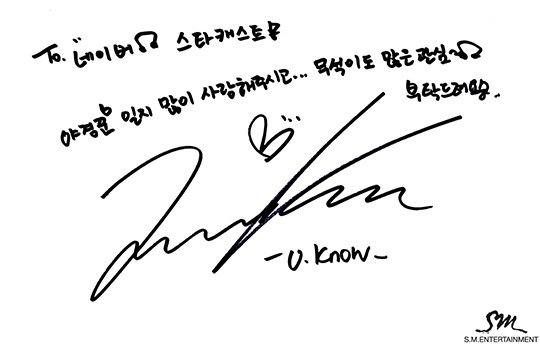 To. 네이버 스타캐스트용
야경꾼 일지 많이 사랑해주시고... 무석이도 많은 관심
부탁드려요.
- U.Know -
SM
S.M.ENTERTAINMENT